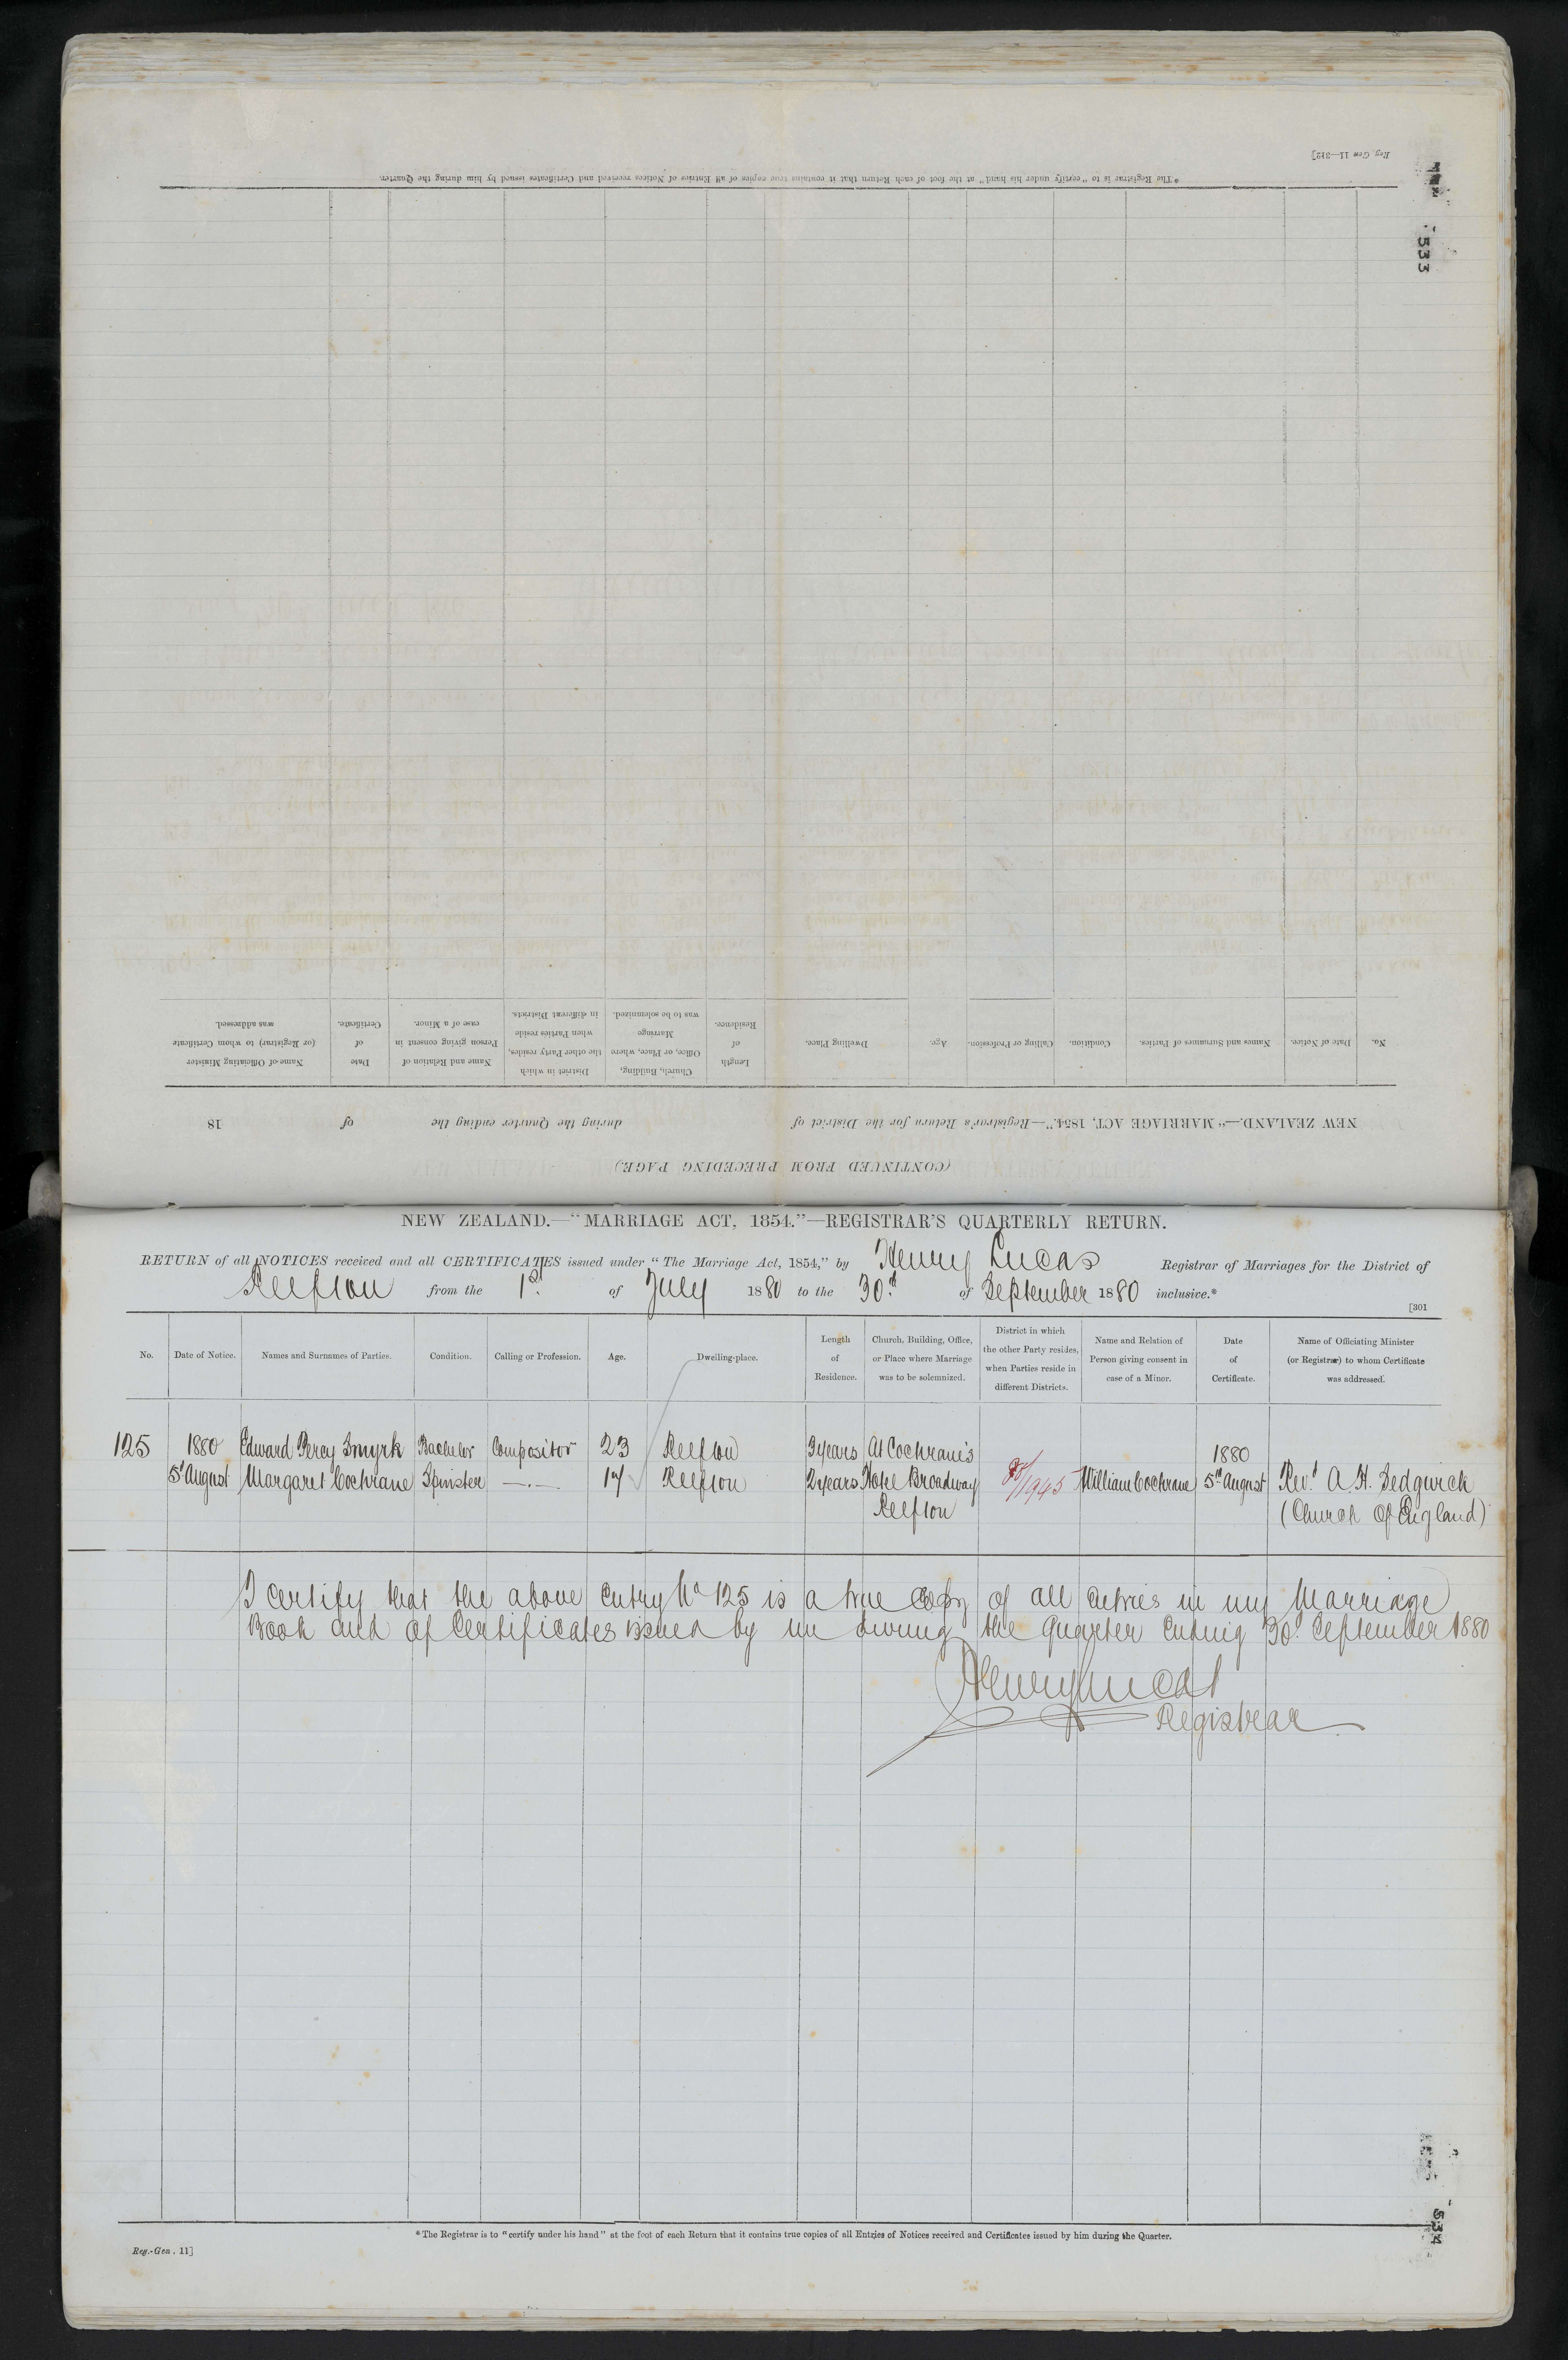 Reg. Gen 11—312]
* The Registrar is to "certify under his hand" at the foot of each Return that it contains true copies of all Entries of Notices received and Certificates issued by him during the Quarter.
533
(CONTINUED FROM PRECEDING PAGE)
NEW ZEALAND.—"MARRIAGE ACT, 1854."—Registrar's Return for the District of during the Quarter ending the of 18
No. Date of Notice. Names and Surnames of Parties. Condition. Calling or Profession. Age. Dwelling Place. Length of Residence. Church, Building, Office, or Place, where Marriage was to be solemnized. District in which the other Party resides, when Parties reside in different Districts. Name and Relation of Person giving consent in case of a Minor. Date of Certificate. Name of Officiating Minister (or Registrar) to whom Certificate was addressed.
NEW ZEALAND.—"MARRIAGE ACT, 1854."—REGISTRAR'S QUARTERLY RETURN.
RETURN of all NOTICES received and all CERTIFICATES issued under "The Marriage Act, 1854," by Henry Lucas Registrar of Marriages for the District of
Reefton from the 1st of July 1880 to the 30th of September 1880 inclusive.*
[301
No. Date of Notice. Names and Surnames of Parties. Condition. Calling or Profession. Age. Dwelling-place. Length of Residence. Church, Building, Office, or Place where Marriage was to be solemnized. District in which the other Party resides, when Parties reside in different Districts. Name and Relation of Person giving consent in case of a Minor. Date of Certificate. Name of Officiating Minister (or Registrar) to whom Certificate was addressed.
125 1880 Edward Percy Smyrk Bachelor Compositor 23 Reefton 3 years At Cochrane's 1880
5th August Margaret Cochrane Spinster —.— 17 Reefton 2 years Hotel Broadway 80/1945 William Cochrane 5th August Revd A. H. Sedgwick
Reefton (Church of England)
I certify that the above entry No 125 is a true copy of all entries in my Marriage
Book and of Certificates issued by me during the Quarter ending 30th September 1880
Henry Lucas
Registrar
* The Registrar is to "certify under his hand" at the foot of each Return that it contains true copies of all Entries of Notices received and Certificates issued by him during the Quarter.
Reg.-Gen. 11]
534